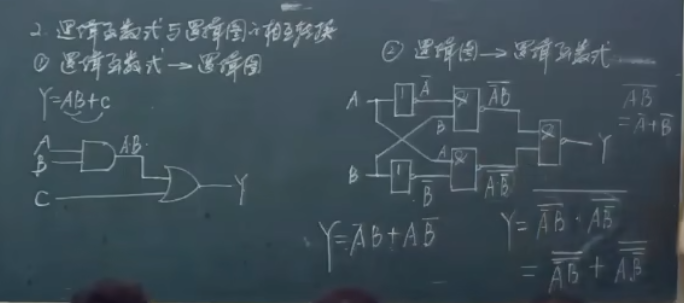 2. 逻辑函数式与逻辑图的相互转换
① 逻辑函数式→逻辑图
Y=AB+C
A
B
AB
C
Y
② 逻辑图→逻辑函数式
A
1
A̅
&
A̅B
B
A
&
Y
B
1
B̅
&
AB̅
A̅B̅
=A̅+B̅
Y=A̅B+AB̅
Y=A̅B·AB̅
=A̅B+AB̅